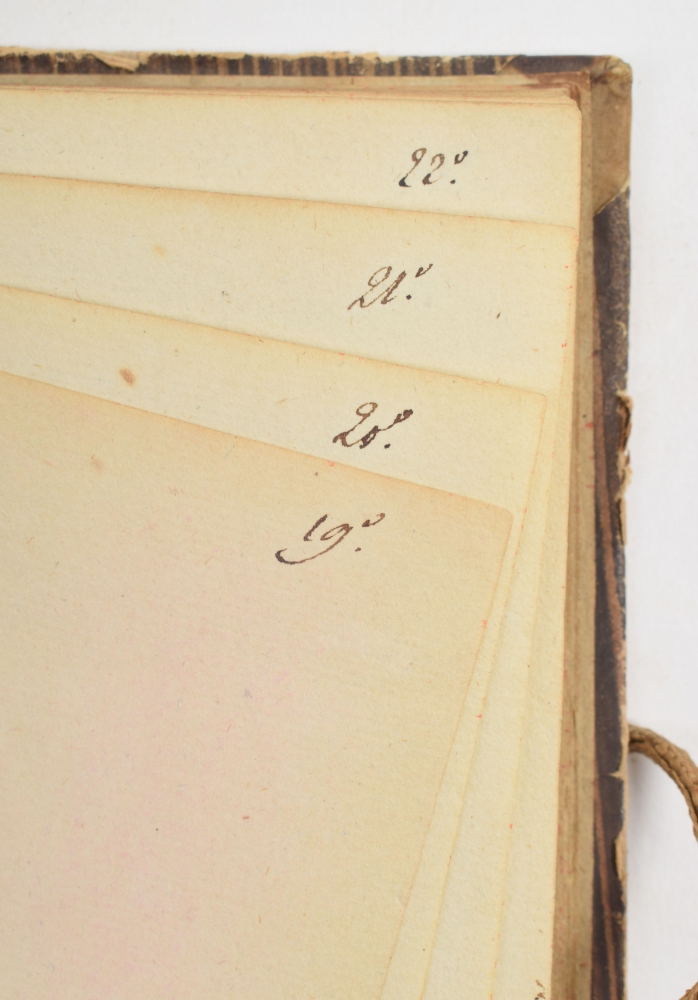 22º.
21º.
20º.
19º.